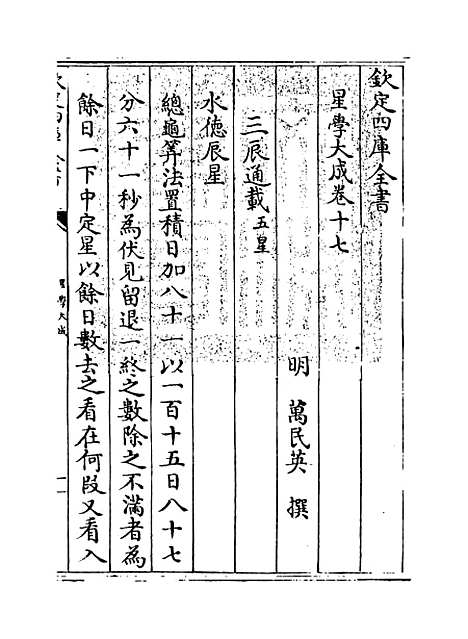 欽定四庫全書
星學大成卷十七
明 萬民英 撰
三辰通載五星
水德辰星
總龜算法置積日加八十一以一百十五日八十七
分六十一秒為伏見留退一終之數除之不滿者為
餘日一下中定星以餘日數去之看在何段又看入
星學大成
一